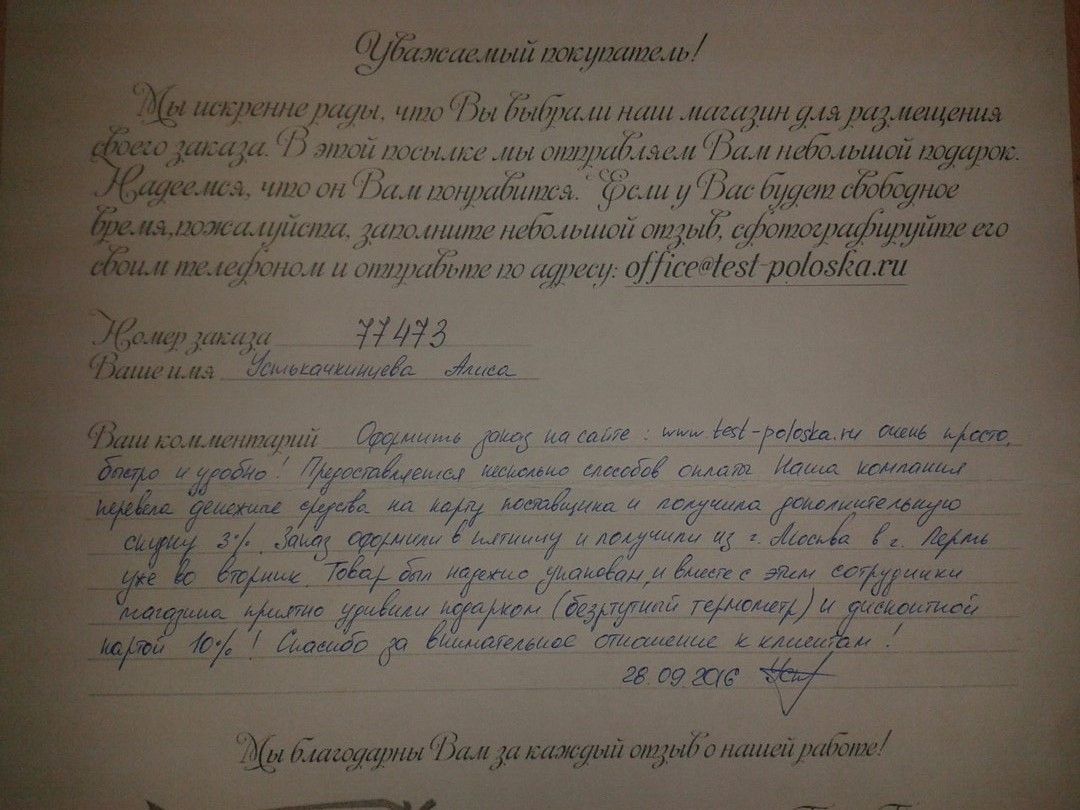 Уважаемый покупатель!
Мы искренне рады, что Вы выбрали наш магазин для размещения
своего заказа. В этой посылке мы отправляем Вам небольшой подарок.
Надеемся, что он Вам понравится. Если у Вас будет свободное
время,пожалуйста, заполните небольшой отзыв, сфотографируйте его
своим телефоном и отправьте по адресу: office@test-poloska.ru
Номер заказа 77473
Ваше имя Устькачкинцева Алиса
Ваш комментарий Оформить заказ на сайте : www.test-poloska.ru очень просто,
быстро и удобно! Предоставляется несколько способов оплаты Наша компания
перевела денежные средства на карту поставщика и получила дополнительную
скидку 3%. Заказ оформили в пятницу и получили из г. Москва в г. Пермь
уже во вторник. Товар был надежно упакован, и вместе с этим сотрудники
магазина приятно удивили подарком (безртутный термометр) и дисконтной
картой 10% ! Спасибо за внимательное отношение к клиентам !
28.09.2016
Мы благодарны Вам за каждый отзыв о нашей работе!